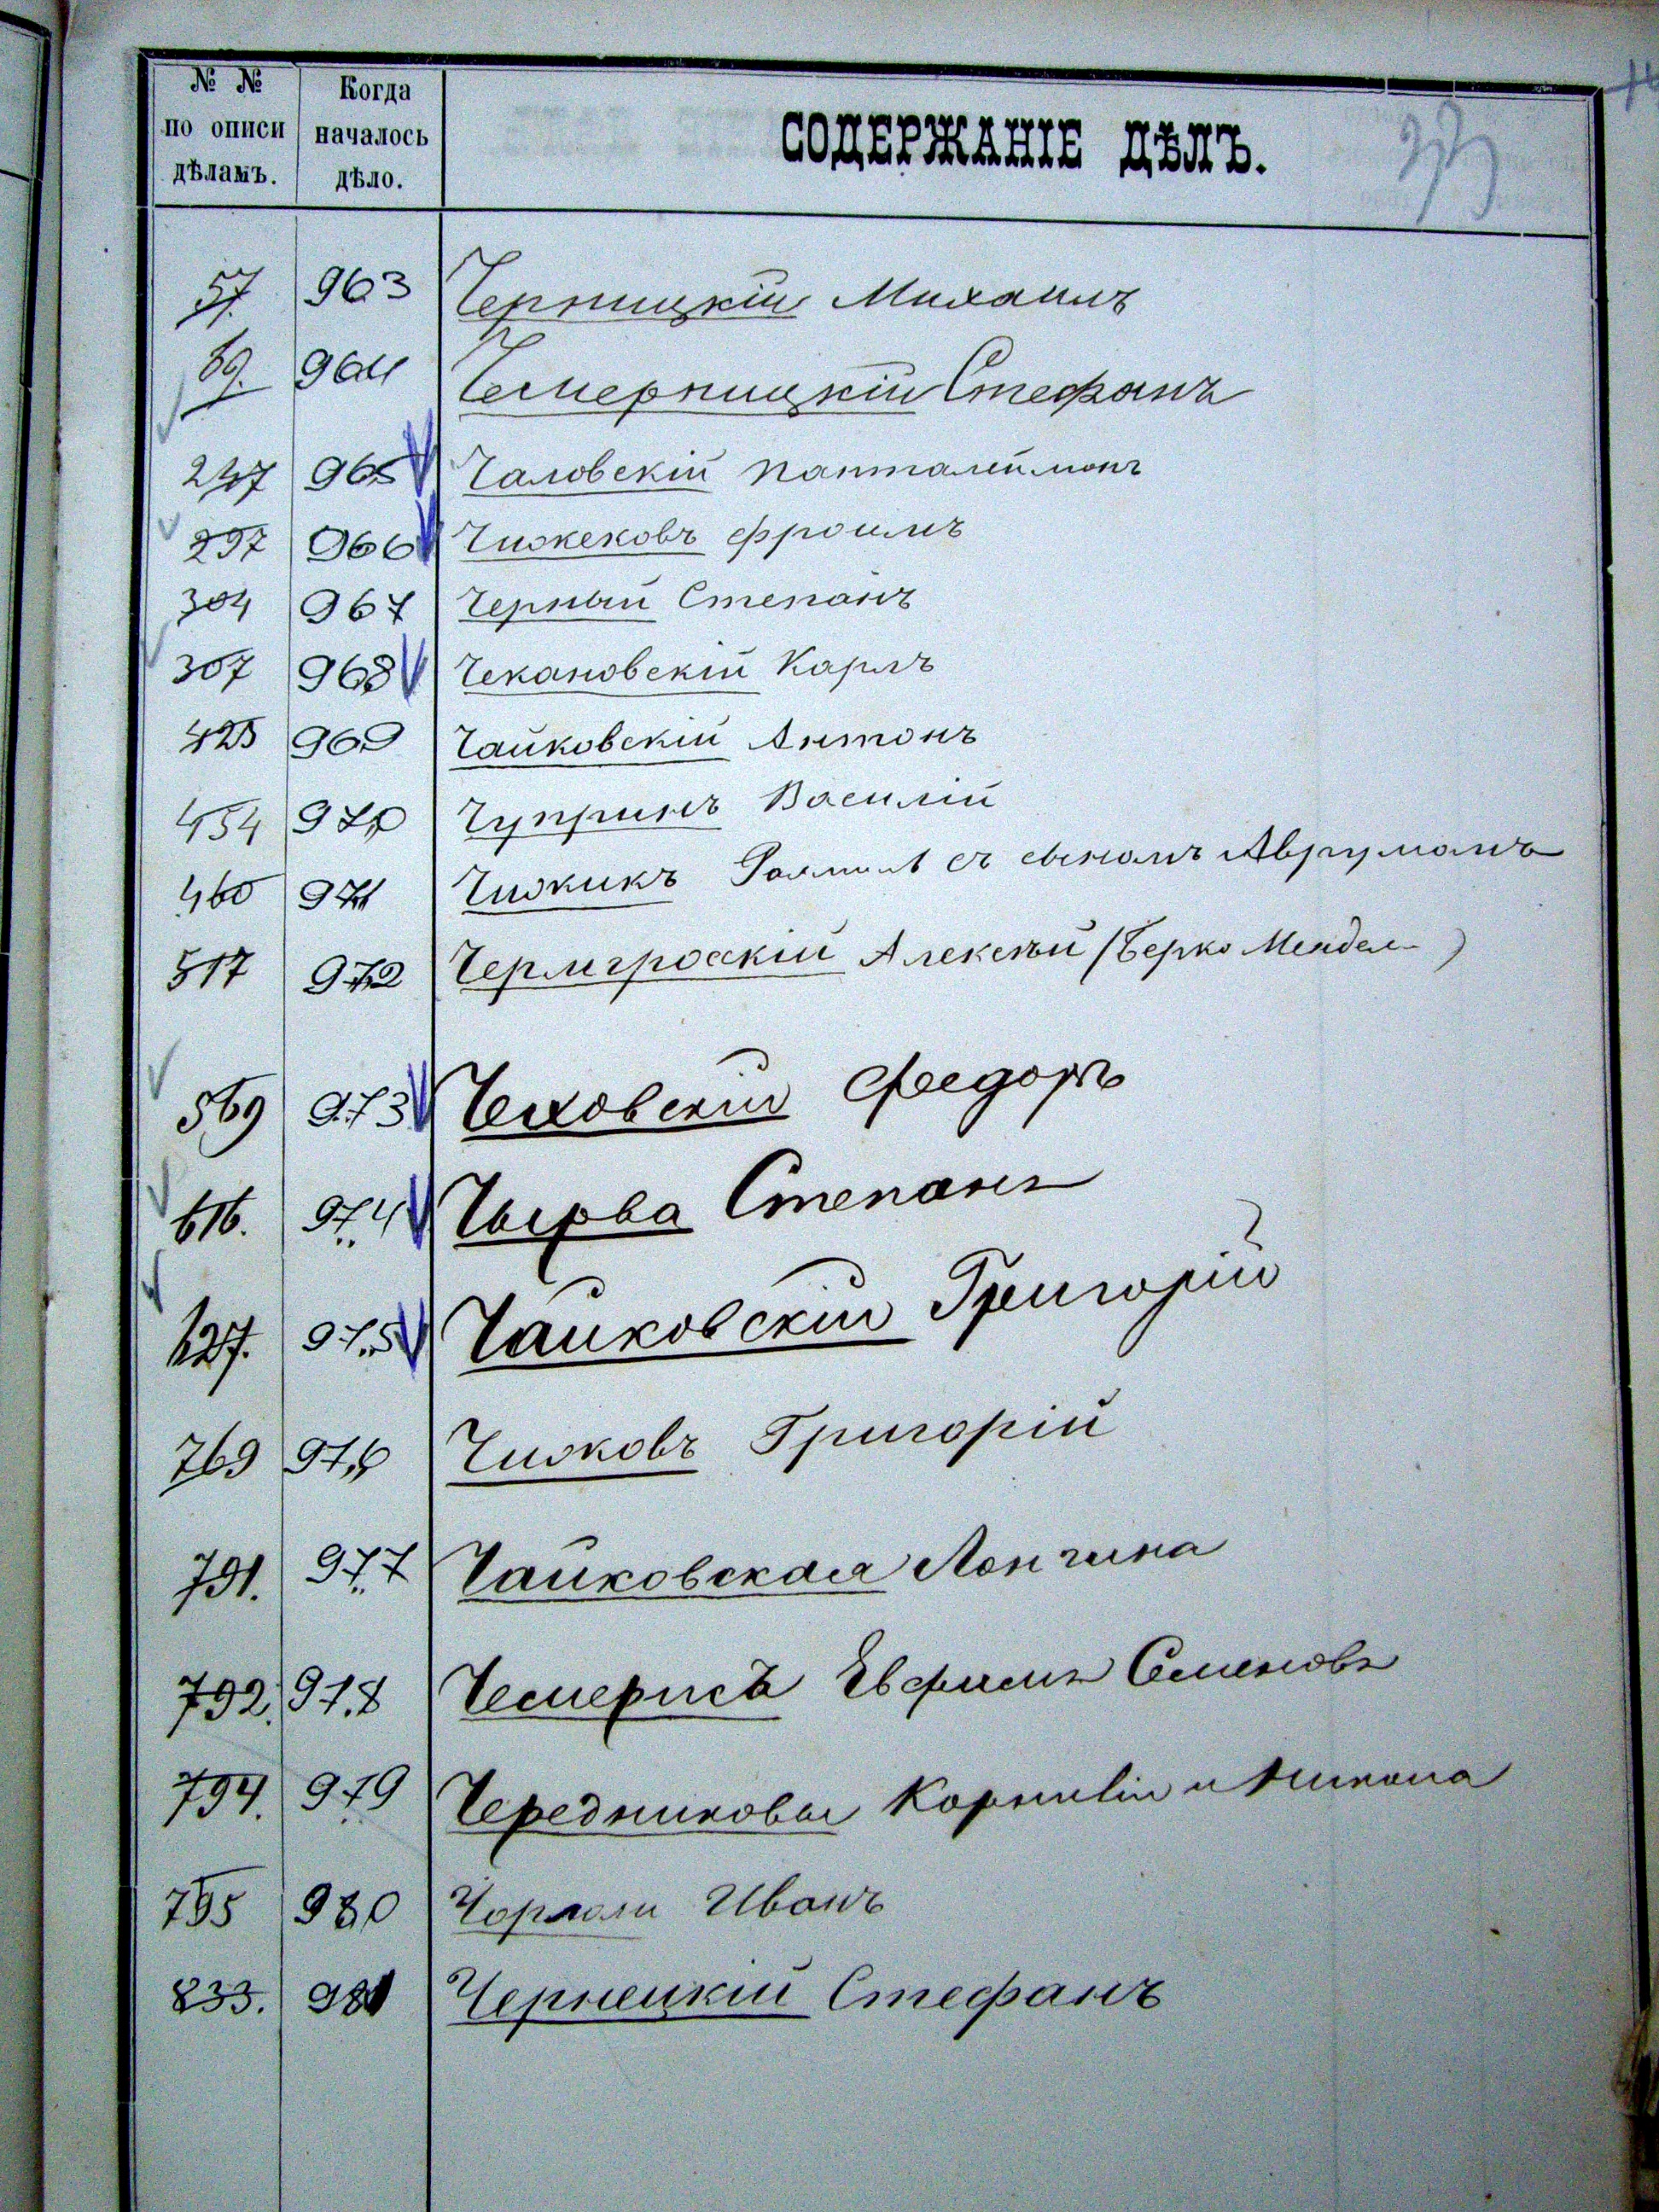 № № по описи дѣламъ.
Когда началось дѣло.
СОДЕРЖАНІЕ ДѢЛЪ.
33
57. 963 Черницкій Михаилъ
69. 964 Чемерницкій Стефанъ
247 965 Чаловскій Панталеймонъ
297 966 Чижековъ Фроимъ
304 967 Черный Степанъ
307 968 Чекановскій Карлъ
425 969 Чайковскій Антонъ
454 970 Чупринъ Василій
460 971 Чижикъ съ сыномъ Аврумомъ
517 972 Алексѣй (Берко Мендель)
569 973 Чеховскій Федоръ
616. 974 Чырва Степанъ
627. 975 Чайковскій Григорій
769 976 Чижовъ Григорій
791. 977 Чайковская Лонгина
792. 978 Чемерисъ Евфимъ Семеновъ
794. 979 Чередниковы Корнилій и
795 980 Иванъ
833. 981 Чернецкій Стефанъ